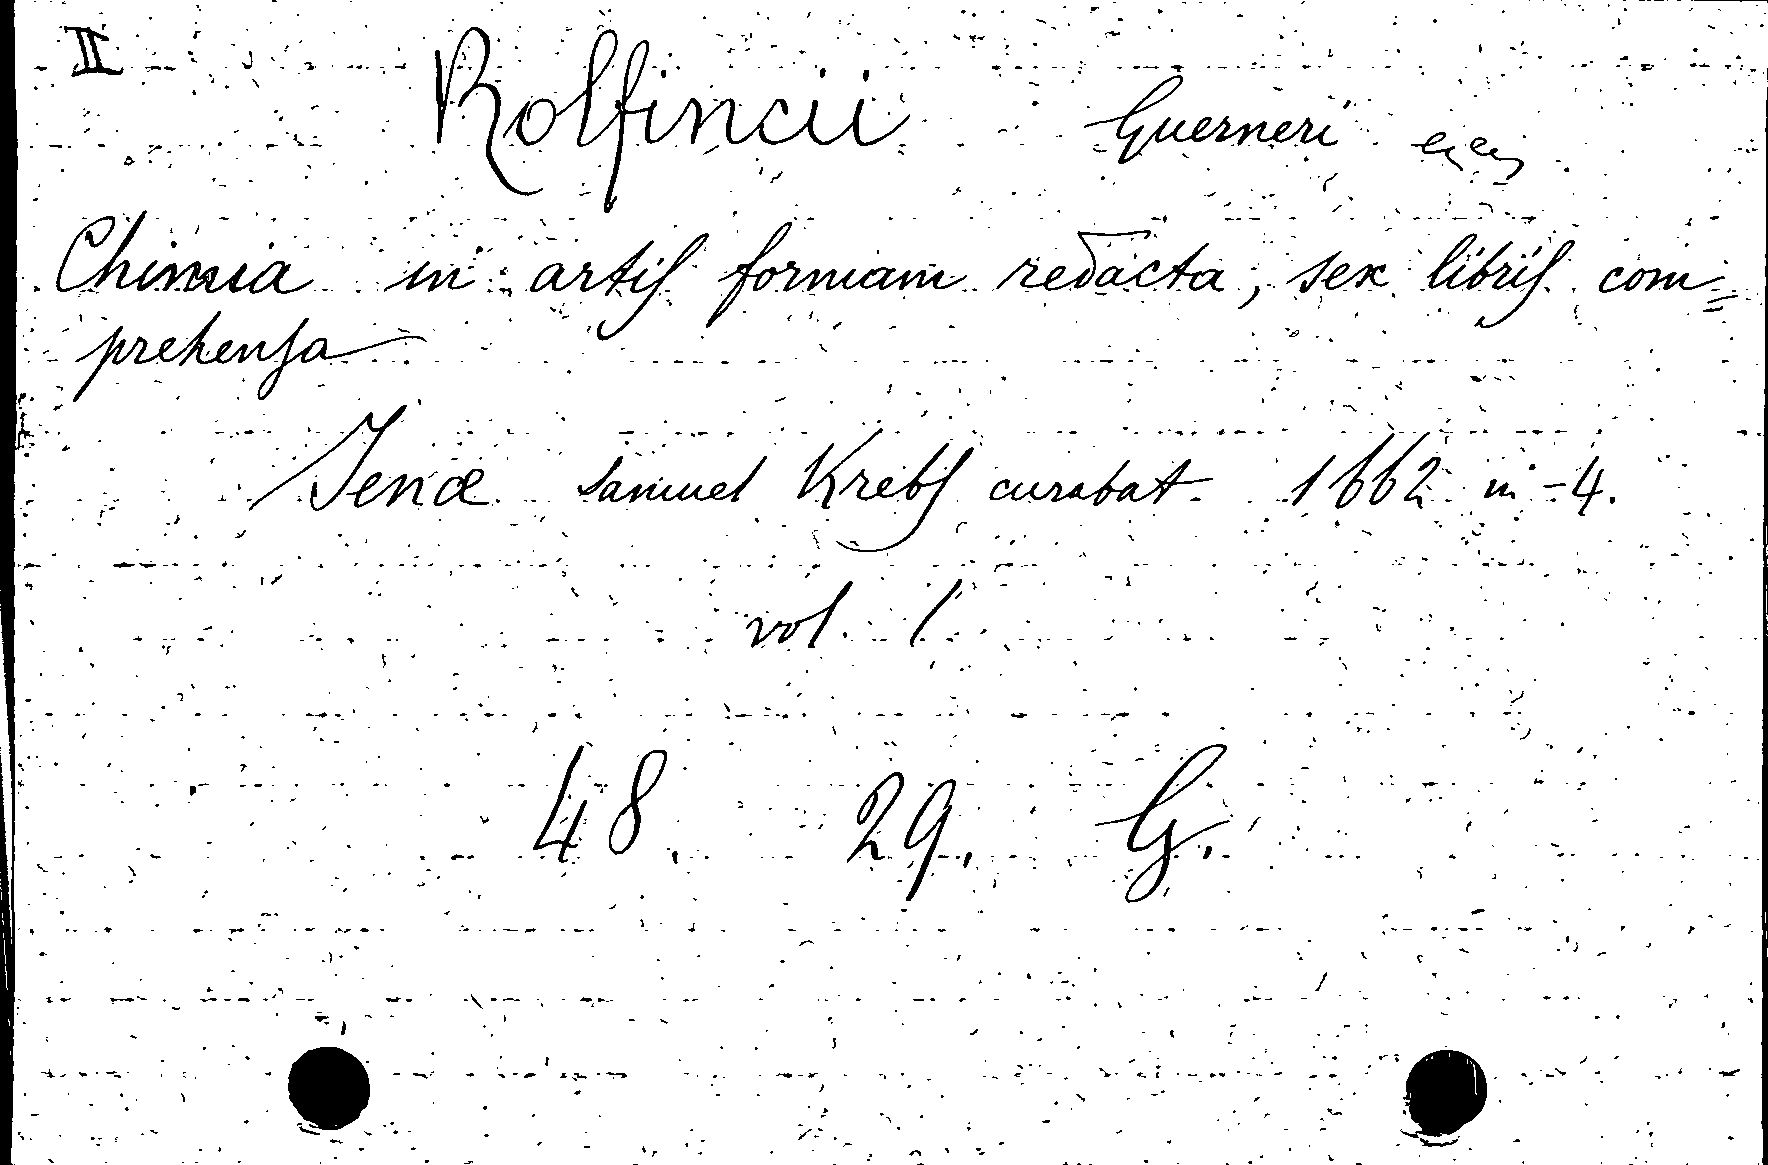 II
Rolfincii Guerneri
Chimia in artiſ formam redacta, sex libriſ com=
prehenſa
Jenæ Samuel Krebſ curabat 1662 in-4.
vol. 1
48. 29. G.